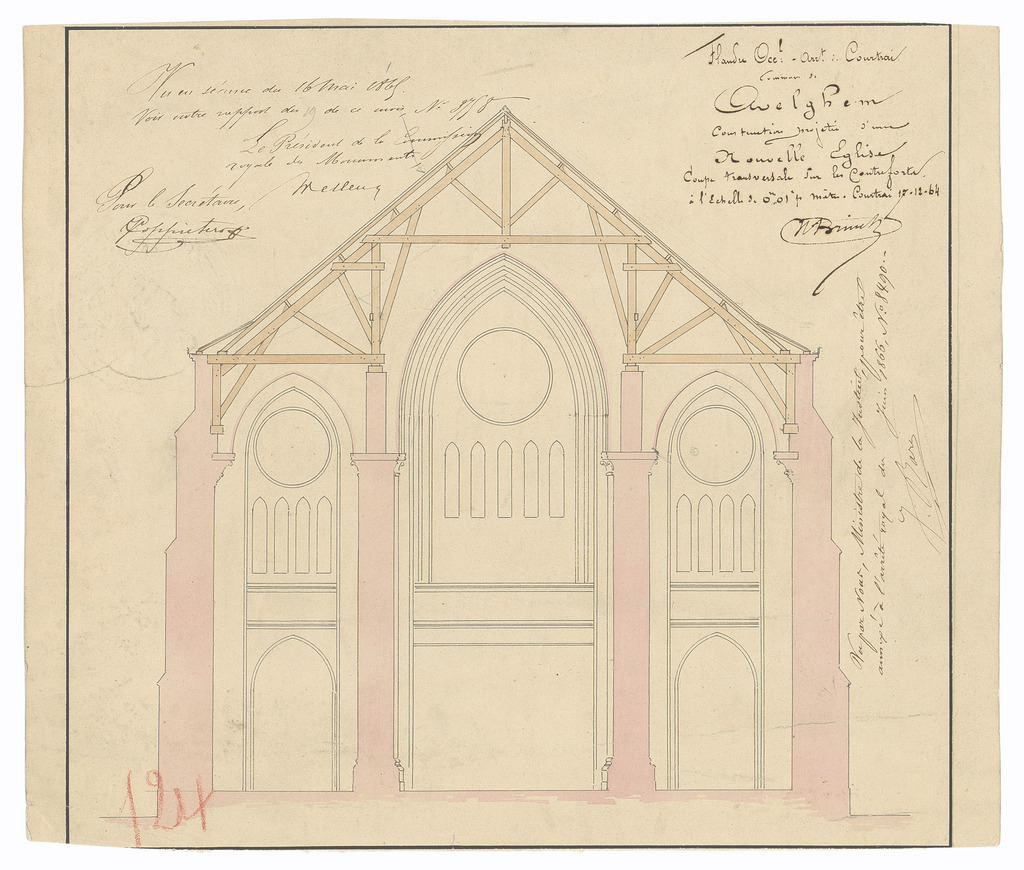 Vu en séance du 16 Mai 1865.
Voir notre rapport du 19 de ce mois, No. 8758
Le Président de la Commission
royale des Monuments
Wellens
Pour le Secrétaire,
Flandre Occ. - Arrt. de Courtrai
Commune de
Avelghem
Construction projetée d'une
Nouvelle Eglise
Coupe transversale sur les Contreforts.
à l'Echelle de 0m,01 p mètre. Courtrai 17-12-64
Vu par Nous, Ministre de la Justice, pour être
annexé à l'arrêté royal du Juin 1865, No. 8490.-
124